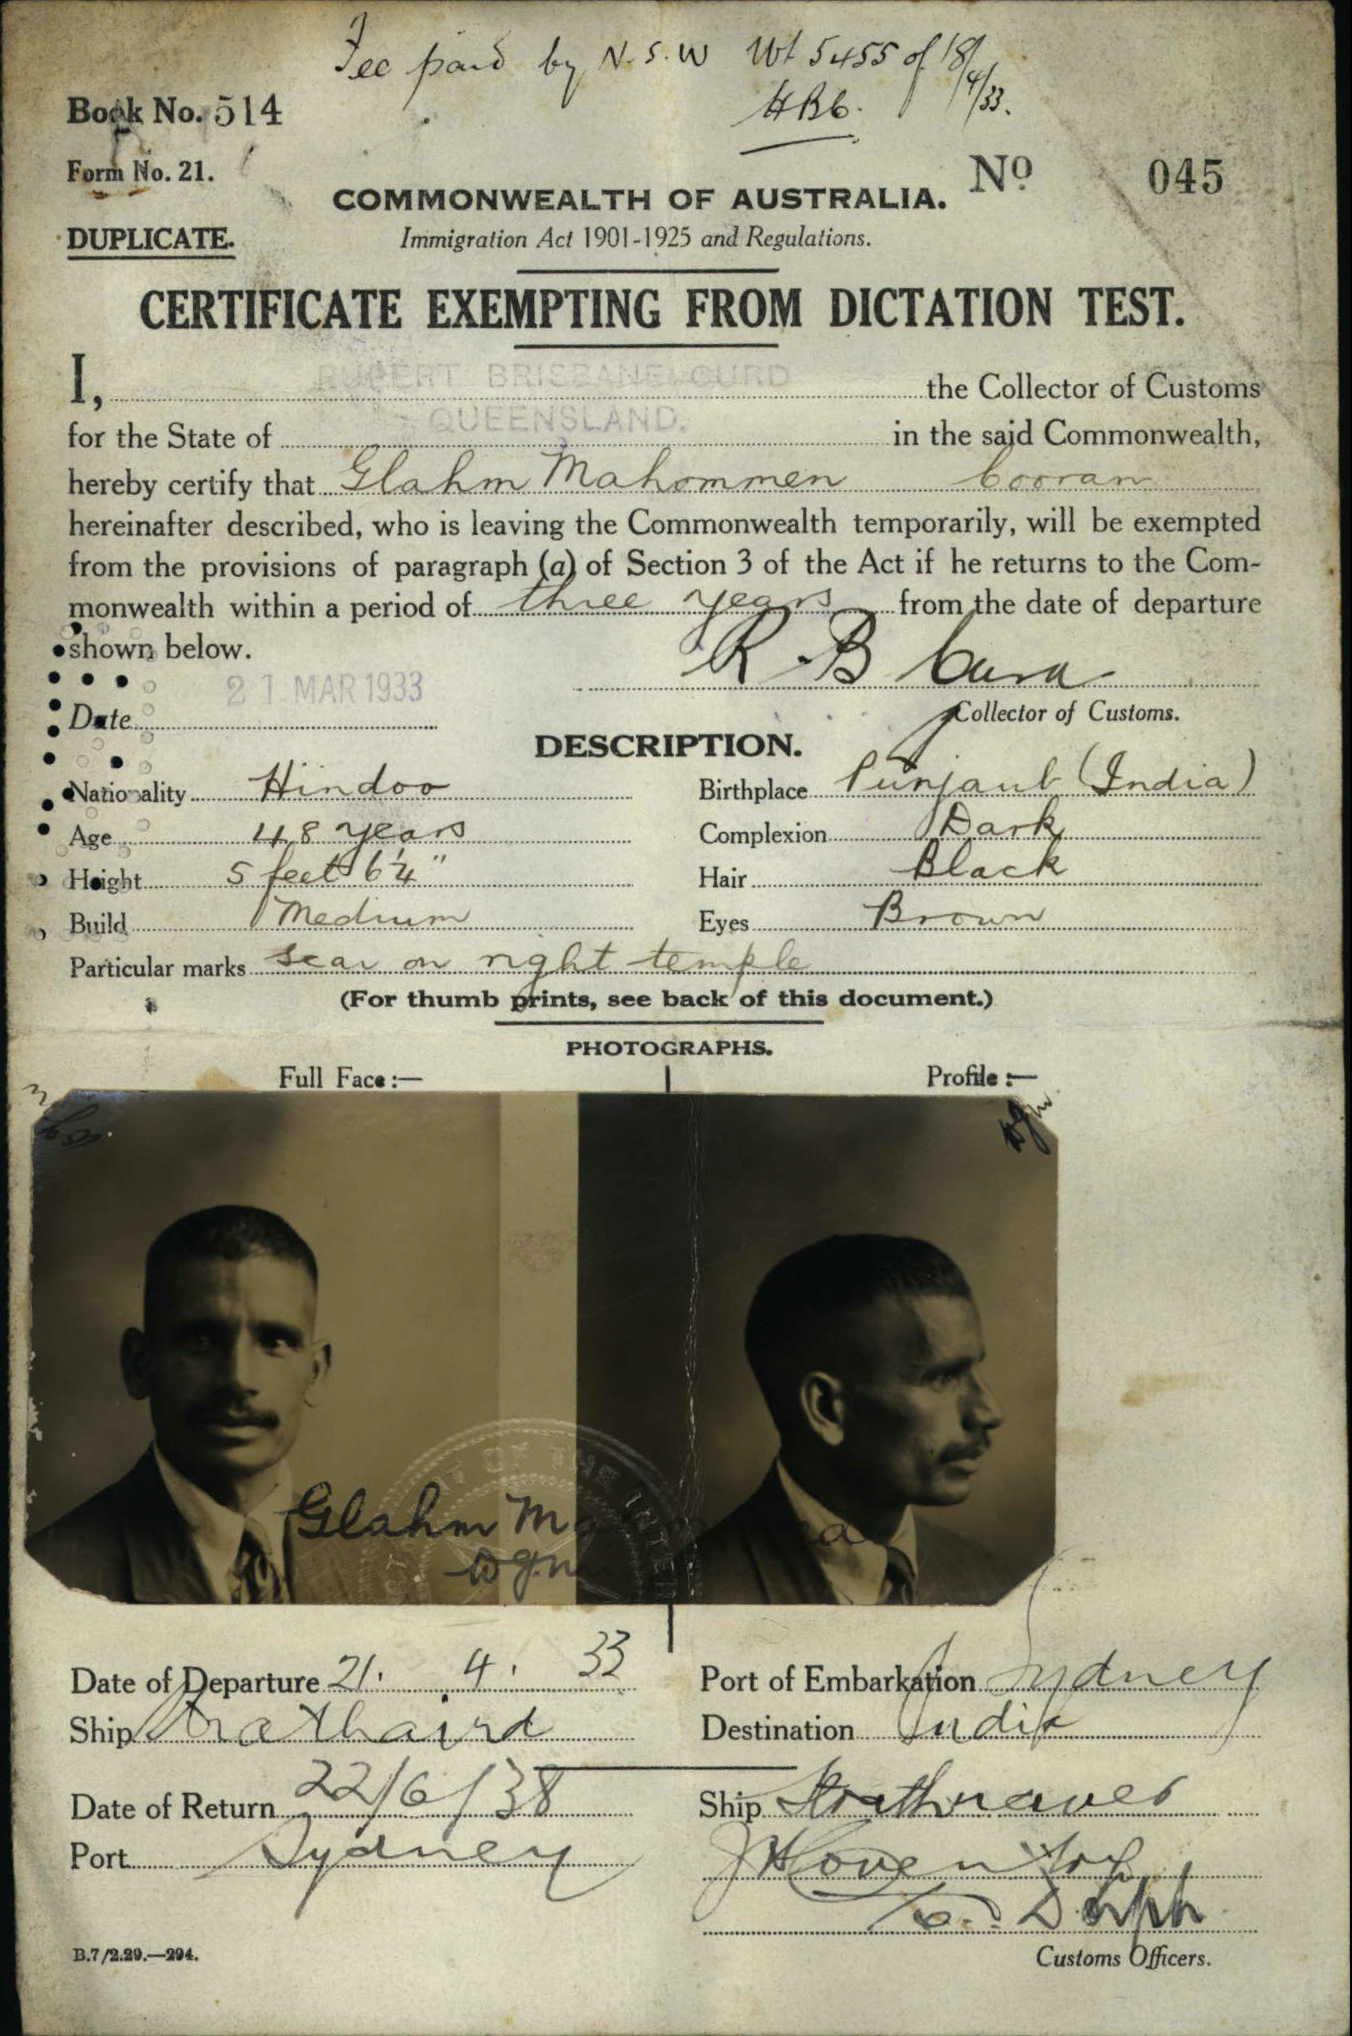 Fee paid by N.S.W Wt 5455 of 18/4/33.
Book No. 514
Form No. 21.
No 045
COMMONWEALTH OF AUSTRALIA.
DUPLICATE.
Immigration Act 1901-1925 and Regulations.
CERTIFICATE EXEMPTING FROM DICTATION TEST.
I, RUPERT BRISBANE CURD the Collector of Customs
for the State of QUEENSLAND. in the said Commonwealth,
hereby certify that Glahm Mahommen Cooran
hereinafter described, who is leaving the Commonwealth temporarily, will be exempted
from the provisions of paragraph (a) of Section 3 of the Act if he returns to the Com-
monwealth within a period of three years from the date of departure
shown below.
R B Curd
Date 21 MAR 1933
Collector of Customs.
DESCRIPTION.
Nationality Hindoo Birthplace Punjaub (India)
Age 48 years Complexion Dark
Height 5 feet 6¼" Hair Black
Build Medium Eyes Brown
Particular marks scar on right temple
(For thumb prints, see back of this document.)
PHOTOGRAPHS.
Full Face:— Profile:—
OF THE INTER
Glahm Ma
Date of Departure 21. 4. 33 Port of Embarkation Sydney
Ship Strathaird Destination India
Date of Return 22/6/38 Ship Strathnaver
Port Sydney
Customs Officers.
B.7/2.29.—294.